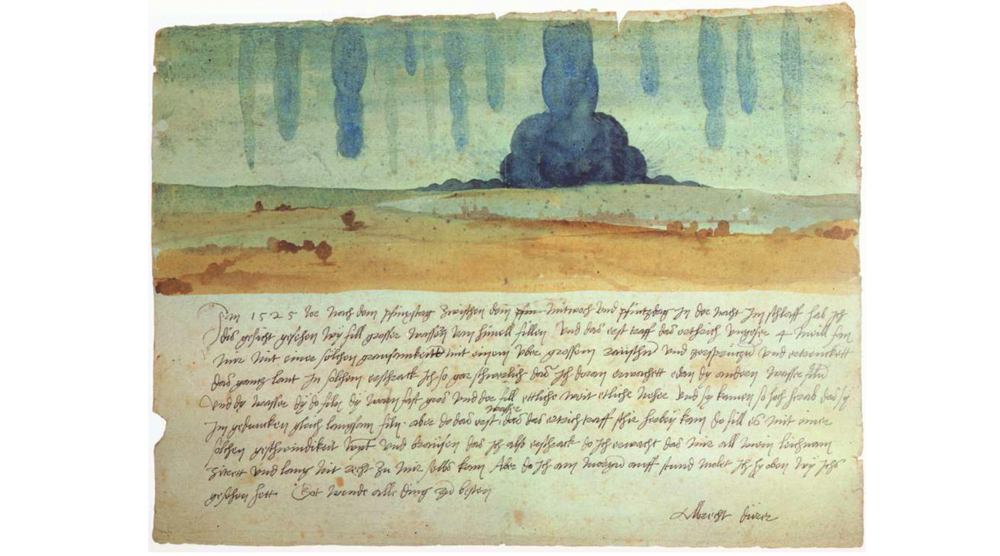 Im 1525 Jor nach dem pfinxtag zwischen dem pfin mitwoch und pfintzdag in der nacht im schlaff hab ich
dis gesicht gesehen wy fill grosser wassern vom himell fillen Und das erst traff das erthrich ungefer 4 meill fan
mir mit einer solchen grausamkeitt mit einem uber grossem raüschn und zersprützn und ertrenckett
das gannz lant In solchem erschrack ich so gar schwerlich das ich doran erwachett edan dy andern wasser filn
Und dy wasser dy do filn dy warn fast gros und der fill ettliche weit etliche neher und sy kamen so hoch herab das sy
im gedancken gleich langsam filn. aber do das erst wasser das das ertrich traff schir herbey kam do fill es mit einer
solchen geschwindikeit wynt und braüsen das ich also erschrack do ich erwacht das mir all mein leichnam
zitrett und lang nit recht zu mir selbs kam Aber do ich am morgn auff stund molet ich hy oben wy ichs
gesehen hett. Got wende alle ding zu besten
Albrecht dürer